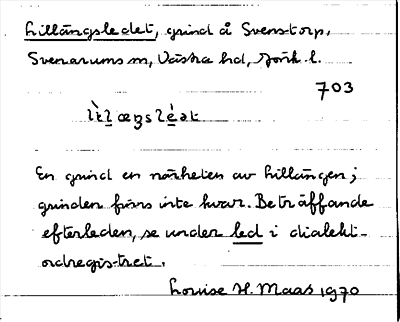 Lillängsledet, grind å Svenstorp,
Svenarums sn, Västra hd, Jönk. l.
703
En grind en närheten av Lillängen;
grinden finns inte kvar. Beträffande
efterleden, se under led i dialekt-
ordregistret.
Louise H. Maas 1970